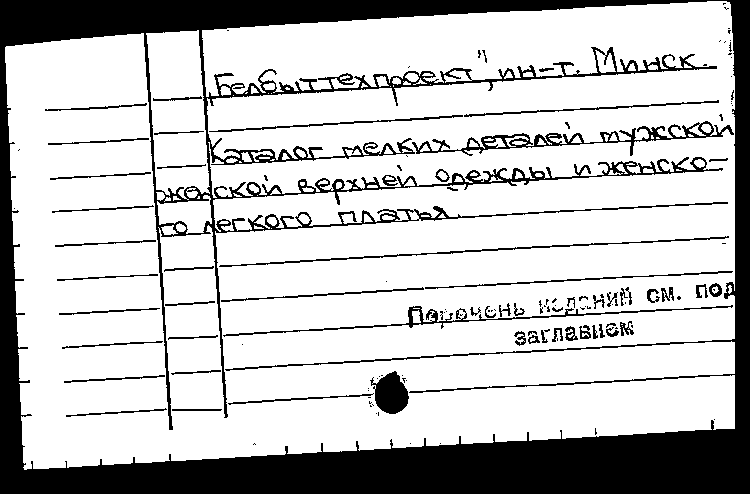 „Белбыттехпроект", ин-т. Минск.
Каталог мелких деталей мужской
женской верхней одежды и женско-
го легкого платья.
Перечень изданий см. под
заглавием